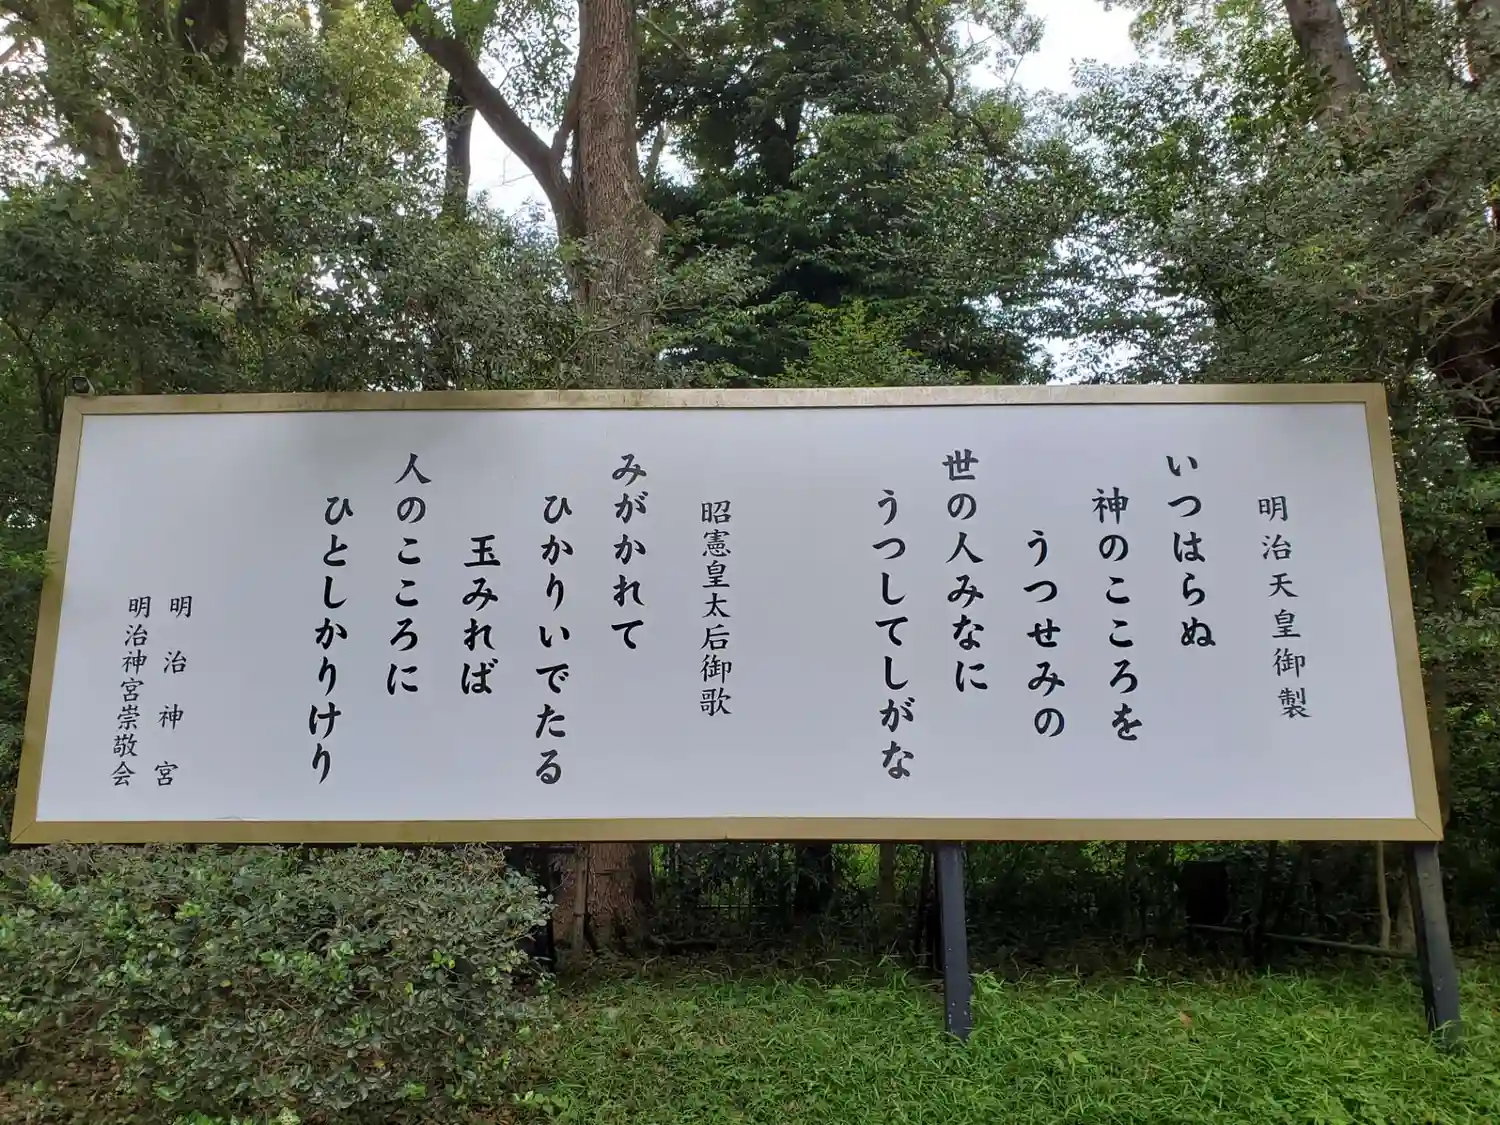 明治天皇御製
いつはらぬ
神のこころを
うつせみの
世の人みなに
うつしてしがな
昭憲皇太后御歌
みがかれて
ひかりいでたる
玉みれば
人のこころに
ひとしかりけり
明治神宮
明治神宮崇敬会